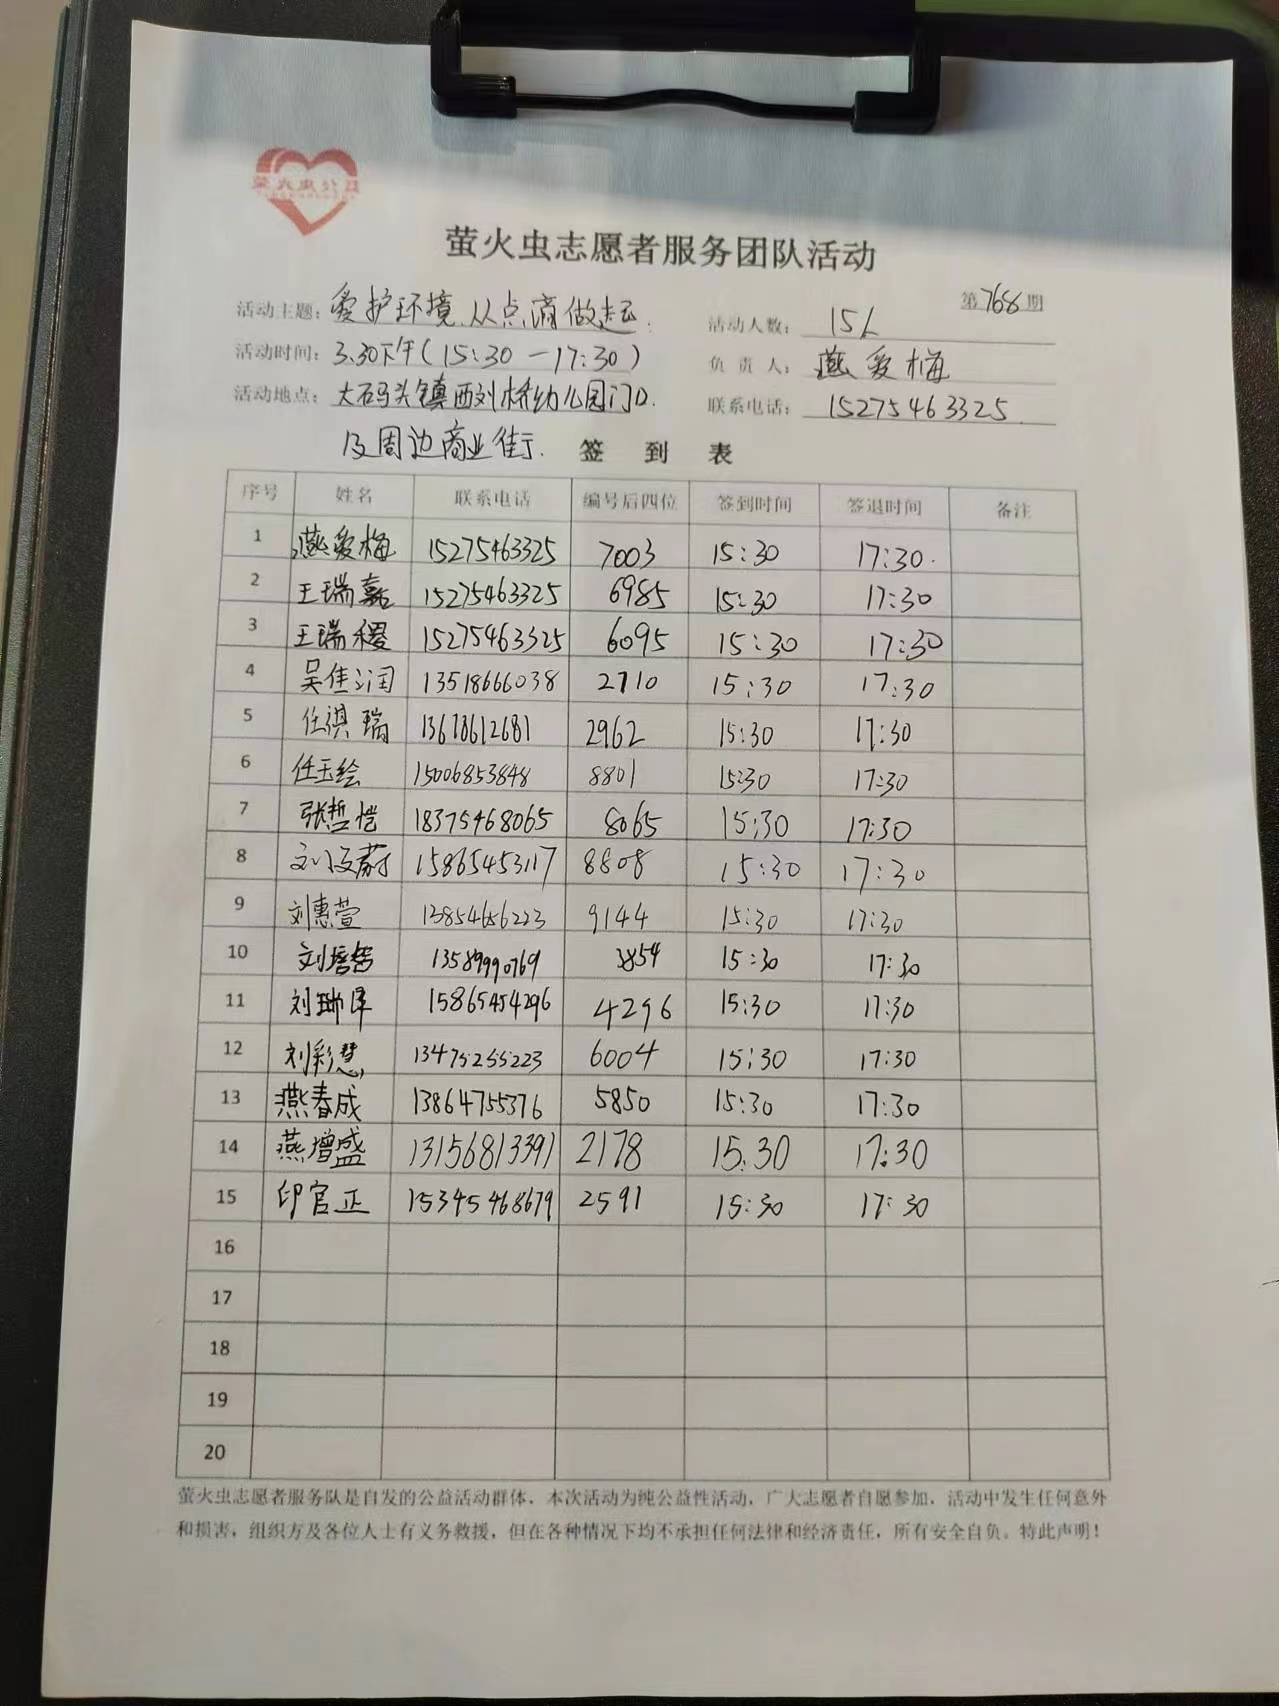 萤火虫公益
萤火虫志愿者服务团队活动
第768期
活动主题:爱护环境,从点滴做起. 活动人数: 15人
活动时间:3.30下午(15:30-17:30) 负责人:燕爱梅
活动地点:大码头镇西刘桥幼儿园门口. 联系电话:15275463325
及周边商业街. 签到表
序号 姓名 联系电话 编号后四位 签到时间 签退时间 备注
1 燕爱梅 15275463325 7003 15:30 17:30.
2 王瑞嘉 15275463325 6985 15:30 17:30
3 王瑞稷 15275463325 6095 15:30 17:30
4 吴佳润 13518666038 2710 15:30 17:30
5 任祺瑞 13678612681 2962 15:30 17:30
6 任玉绘 15006853848 8801 15:30 17:30
7 张哲恺 18375468065 8065 15:30 17:30
8 刘 蔚 15865453117 8808 15:30 17:30
9 刘惠萱 13854656223 9144 15:30 17:30
10 刘 13589990769 3854 15:30 17:30
11 刘 15865454296 4296 15:30 17:30
12 刘彩慧 13475255223 6004 15:30 17:30
13 燕春成 13864755376 5850 15:30 17:30
14 燕增盛 13156813391 2178 15:30 17:30
15 印官正 15345468679 2591 15:30 17:30
16
17
18
19
20
萤火虫志愿者服务队是自发的公益活动群体,本次活动为纯公益性活动,广大志愿者自愿参加,活动中发生任何意外
和损害,组织方及各位人士有义务救援,但在各种情况下均不承担任何法律和经济责任,所有安全自负。特此声明!